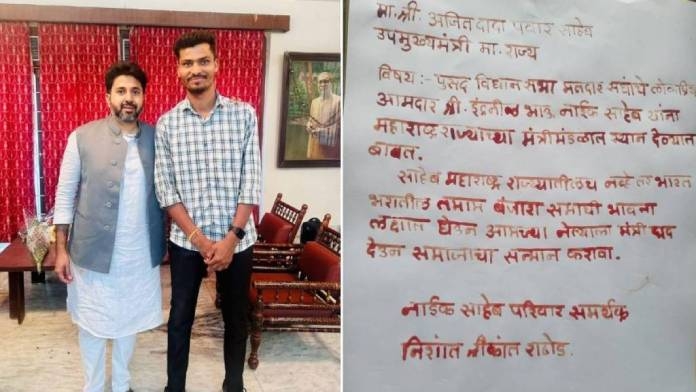 मा.श्री. अजितदादा पवार साहेब
उपमुख्यमंत्री मा. राज्य
विषय:- पुसद विधान सभा मतदार संघाचे लोकप्रिय
आमदार श्री. इंद्रनील भाऊ नाईक साहेब यांना
महाराष्ट्र राज्याच्या मंत्रीमंडळात स्थान देण्यात
बाबत.
साहेब महाराष्ट्र राज्यातीलच नव्हे तर भारत
भरातील तमाम बंजारा समाची भावना
लक्षात घेऊन आमच्या नेत्याला मंत्री पद
देऊन समाजाचा सन्मान करावा.
नाईक साहेब परिवार समर्थक
निशांत श्रीकांत राठोड.